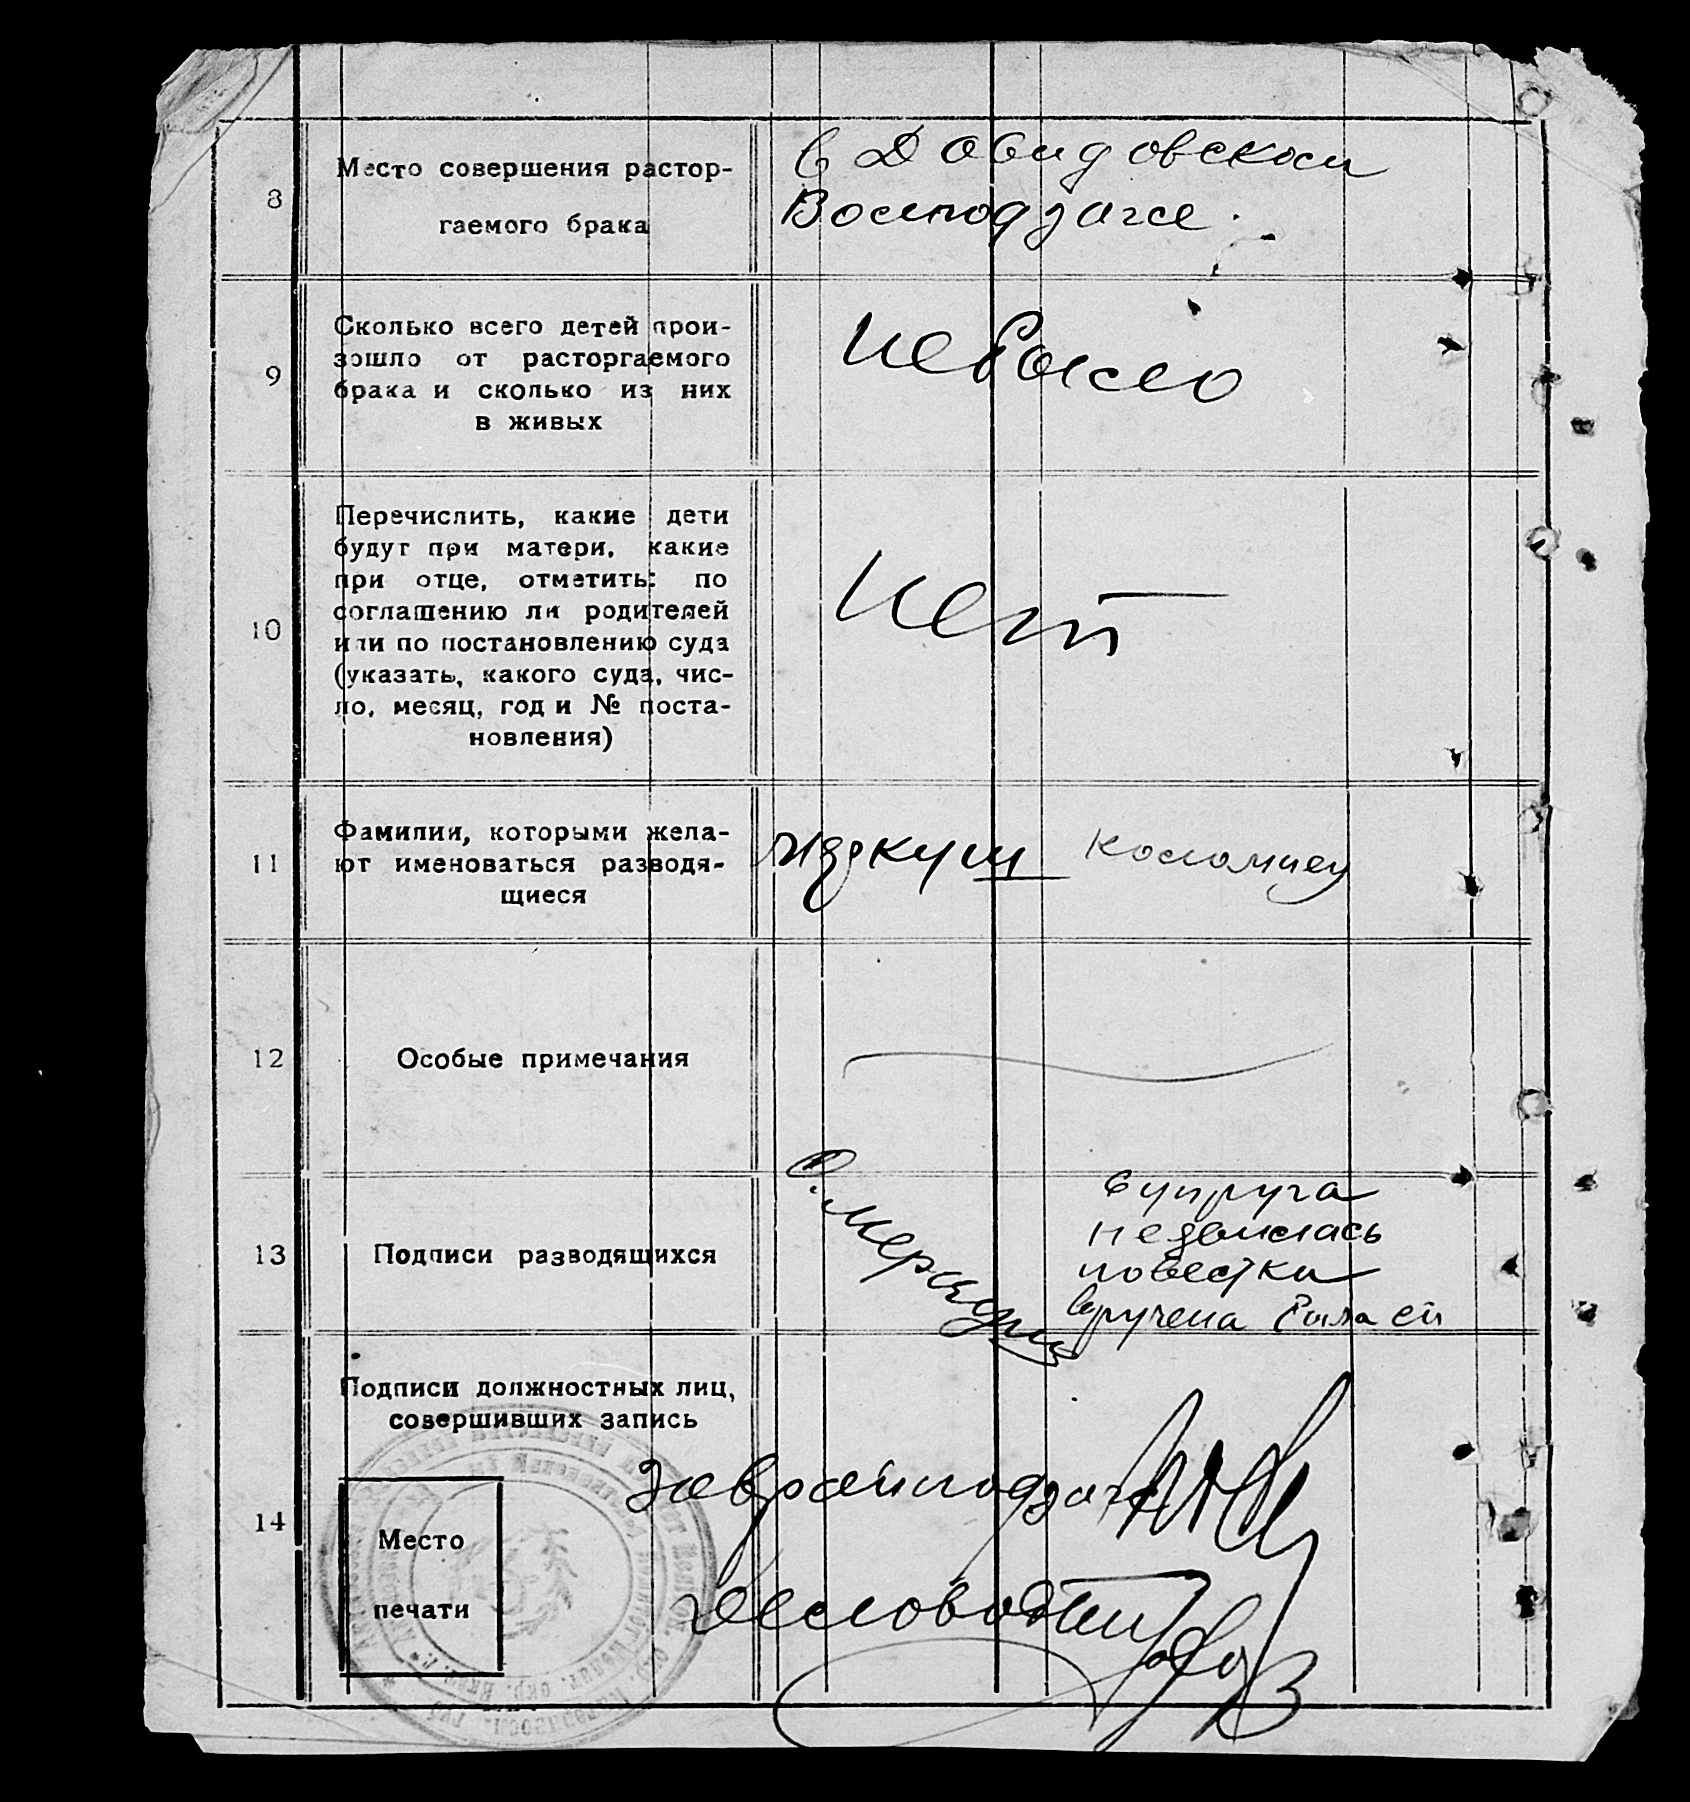 8
Место совершения растор-
гаемого брака
в Давидовском
Волподзагсе.
9
Сколько всего детей прои-
зошло от расторгаемого
брака и сколько из них
в живых
небыло
10
Перечислить, какие дети
будут при матери, какие
при отце, отметить: по
соглашению ли родителей
или по постановлению суда
(указать, какого суда, чис-
ло, месяц, год и № поста-
новления)
нет
11
Фамилии, которыми жела-
ют именоваться разводя-
щиеся
Коломиец
12
Особые примечания
13
Подписи разводящихся
супруга
неявилась
повестка
вручена была ей
14
Подписи должностных лиц,
совершивших запись
Место
печати
Заврайподзагс
Деловод